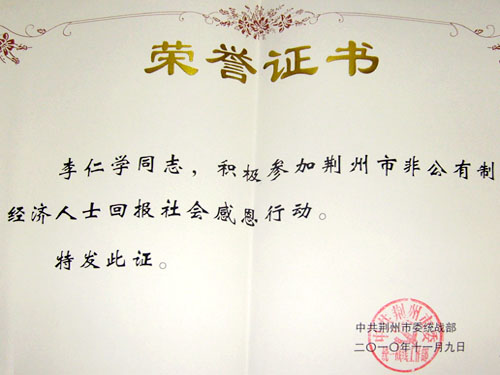 荣誉证书
李仁学同志，积极参加荆州市非公有制
经济人士回报社会感恩行动。
特发此证。
中共荆州市委统战部
二〇一〇年十一月九日
中共荆州市委
统一战线工作部